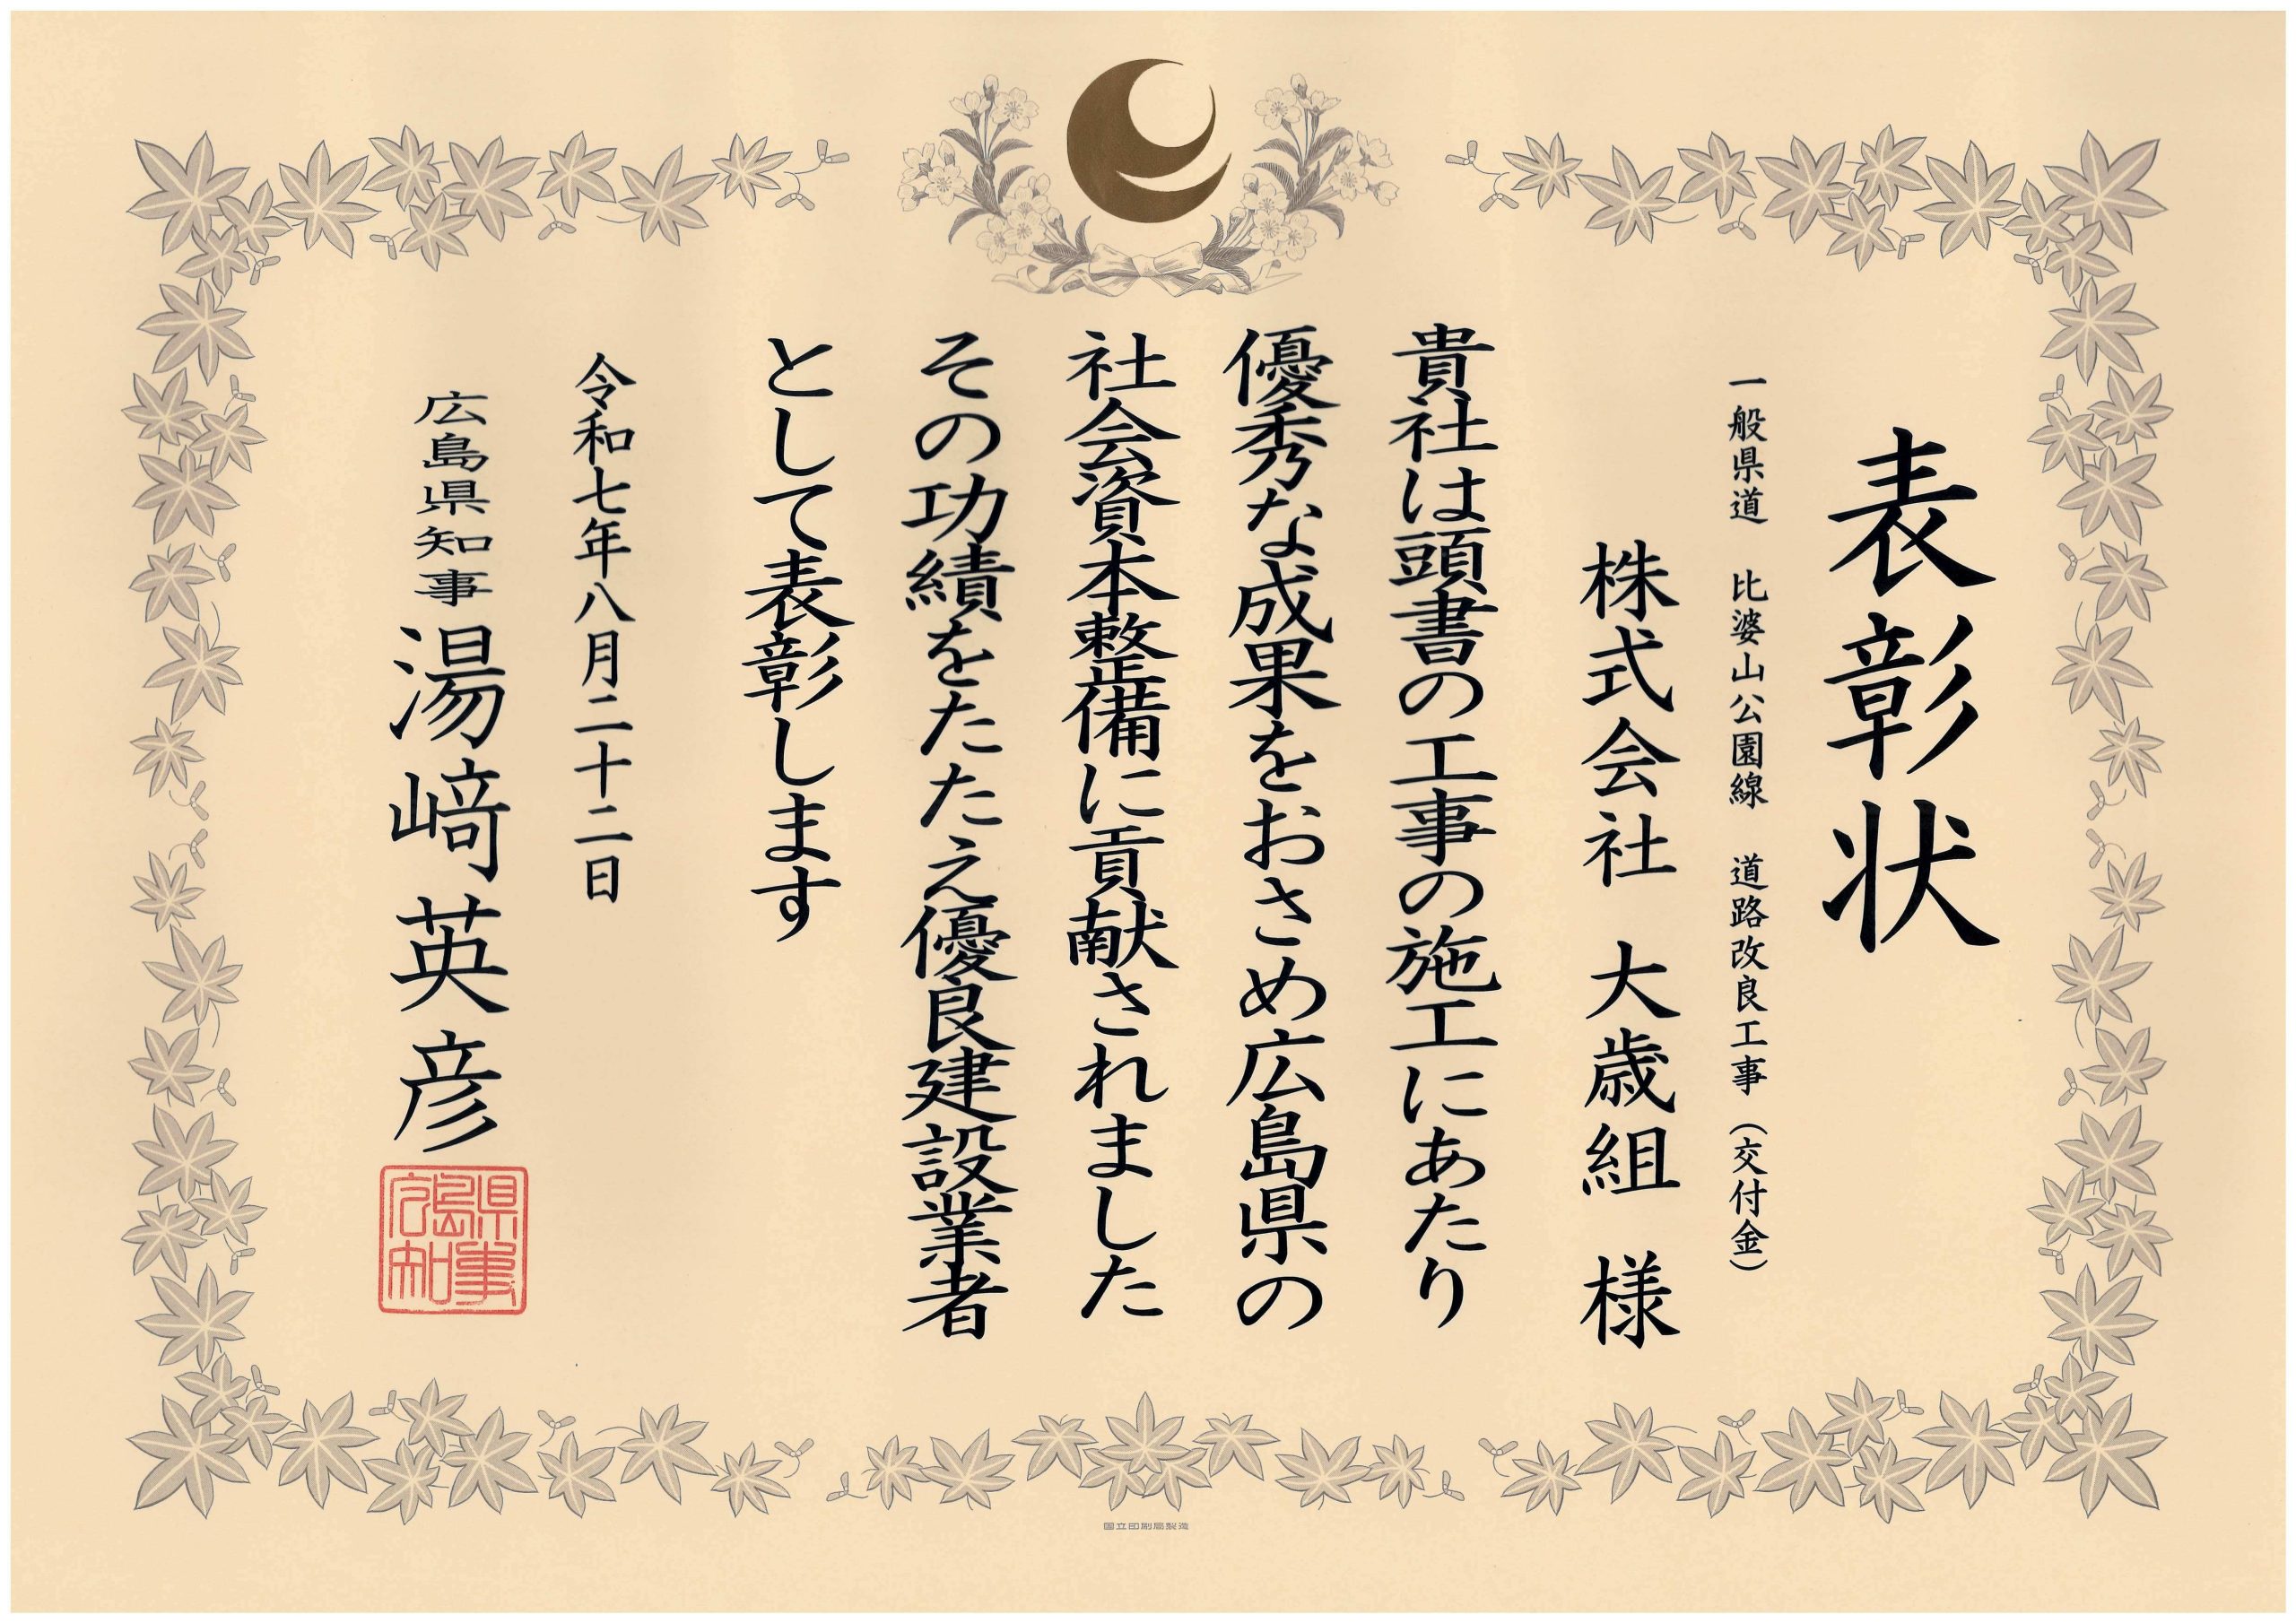 表彰状
一般県道　比婆山公園線　道路改良工事（交付金）
株式会社　大歳組　様
貴社は頭書の工事の施工にあたり
優秀な成果をおさめ広島県の
社会資本整備に貢献されました
その功績をたたえ優良建設業者
として表彰します
令和七年八月二十二日
広島県知事　湯﨑英彦
広島県知事
国立印刷局製造